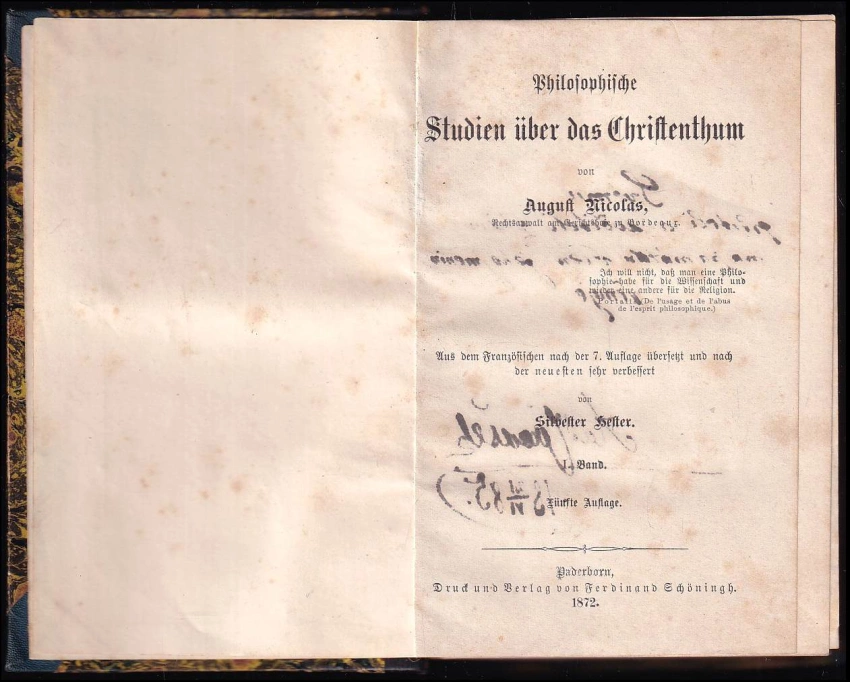 Philosophische
Studien über das Christenthum
von
August Nicolas,
Rechtsanwalt am Gerichtshofe zu Bordeaux.
Ich will nicht, daß man eine Philo-
sophie habe für die Wissenschaft und
wieder eine andere für die Religion.
Portalis (De l'usage et de l'abus
de l'esprit philosophique.)
Aus dem Französischen nach der 7. Auflage übersetzt und nach
der neuesten sehr verbessert
von
Silvester Hester.
I. Band.
Fünfte Auflage.
Paderborn,
Druck und Verlag von Ferdinand Schöningh.
1872.